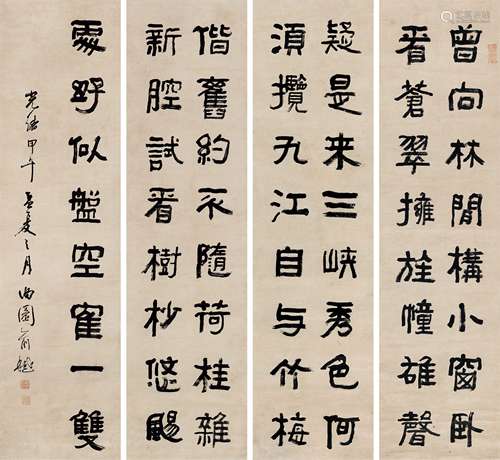 曾向林閒構小窗卧
看蒼翠擁旌幢雄聲
疑是来三峽秀色何
須攬九江自与竹梅
偕舊約不隨荷桂雜
新腔試看樹杪悠颺
處好似盤空寉一雙
光緒甲午孟夏之月曲園俞樾